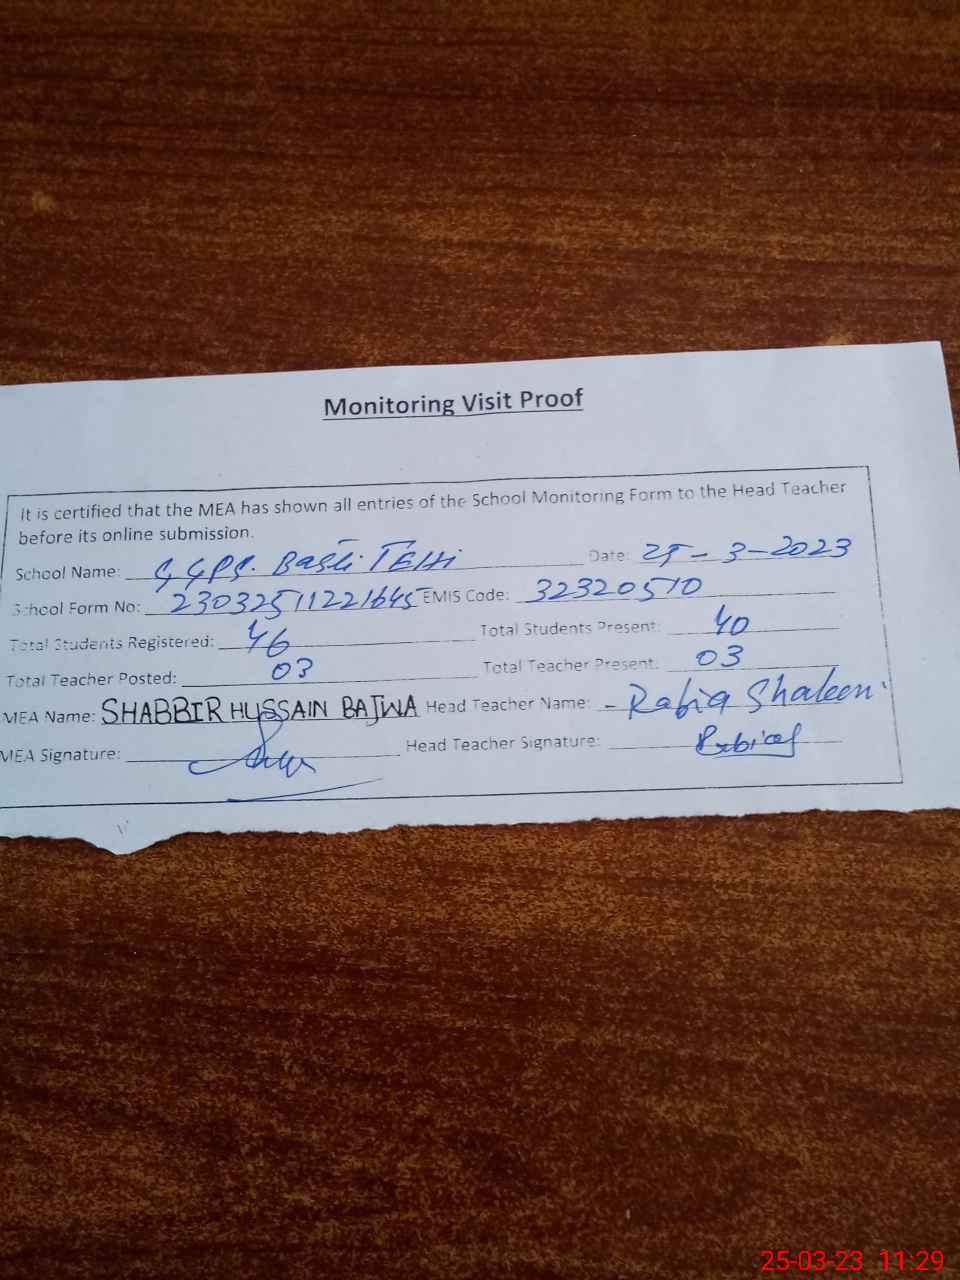 Monitoring Visit Proof
It is certified that the MEA has shown all entries of the School Monitoring Form to the Head Teacher
before its online submission.
School Name: G,GPS. Basti Date: 25-3-2023
School Form No: 23032511221645 EMIS Code: 32320510
Total Students Registered: 46 Total Students Present: 40
Total Teacher Posted: 03 Total Teacher Present: 03
MEA Name: SHABBIR HUSSAIN BAJWA Head Teacher Name: - Rabia Shaheen
MEA Signature: Head Teacher Signature:
25-03-23 11:29